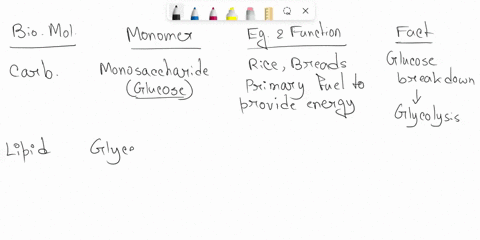 Bio. Mol. Monomer Eg. & Function Fact
Carb. Monosaccharide Rice, Breads Glucose
(Glucose) Primary Fuel to breakdown
provide energy ↓
Glycolysis
Lipid Glyce